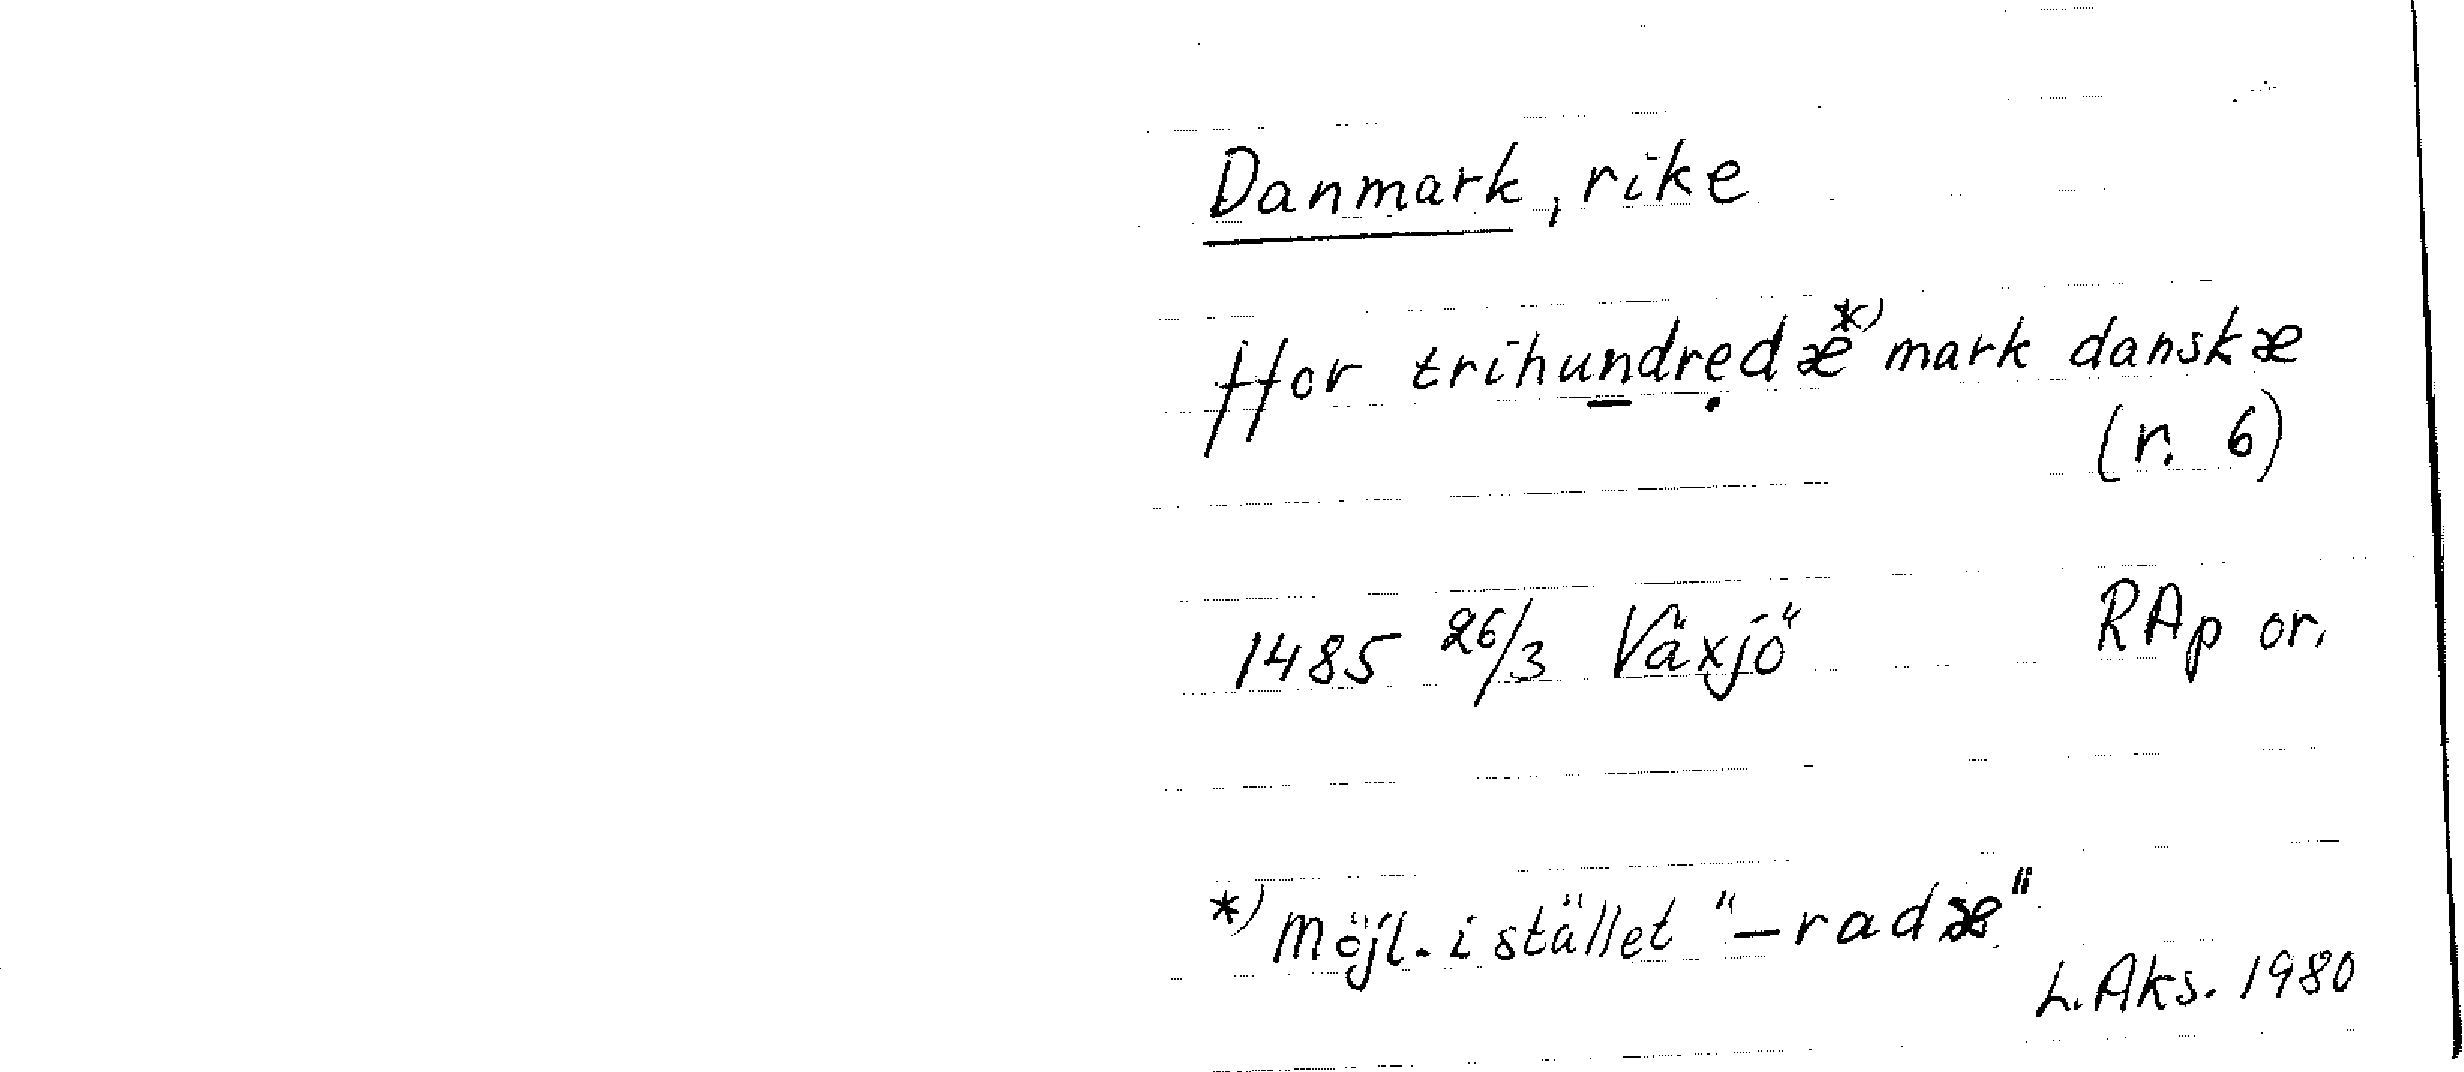 Danmark, rike
ffor trihundredæ*) mark danskæ
(r. 6)
1485 26/3 Växjö RAp or.
*) Möjl. i stället "–radæ"
L. Aks. 1980